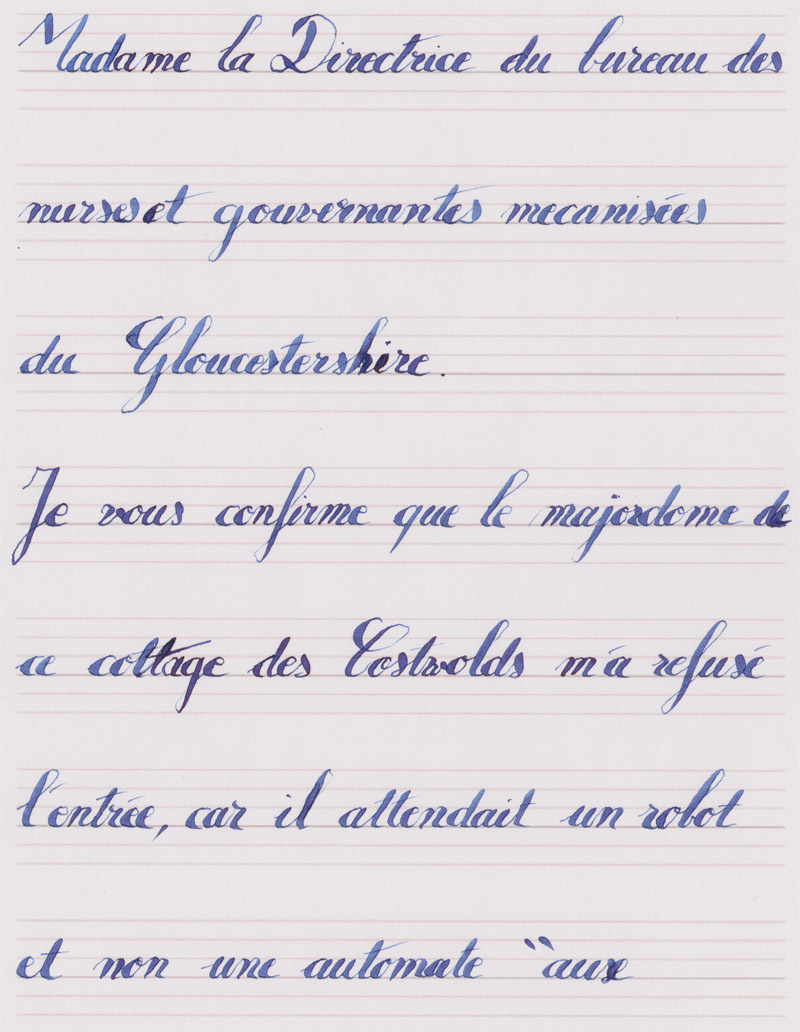 Madame la Directrice du bureau des
nurses et gouvernantes mecanisées
du Gloucestershire.
Je vous confirme que le majordome de
ce cottage des Costwolds m'a refusé
l'entrée, car il attendait un robot
et non une automate "aux